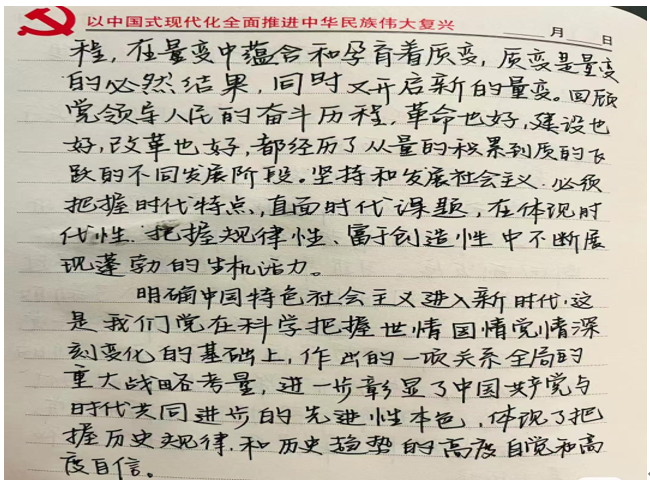 以中国式现代化全面推进中华民族伟大复兴 月 日
程，在量变中蕴含和孕育着质变，质变是量变
的必然结果，同时又开启新的量变。回顾
党领导人民的奋斗历程，革命也好，建设也
好，改革也好，都经历了从量的积累到质的飞
跃的不同发展阶段。坚持和发展社会主义，必须
把握时代特点，直面时代课题，在体现时
代性、把握规律性、富于创造性中不断展
现蓬勃的生机活力。
明确中国特色社会主义进入新时代，这
是我们党在科学把握世情国情党情深
刻变化的基础上，作出的一项关系全局的
重大战略考量，进一步彰显了中国共产党与
时代共同进步的先进性本色，体现了把
握历史规律和历史趋势的高度自觉和高
度自信。